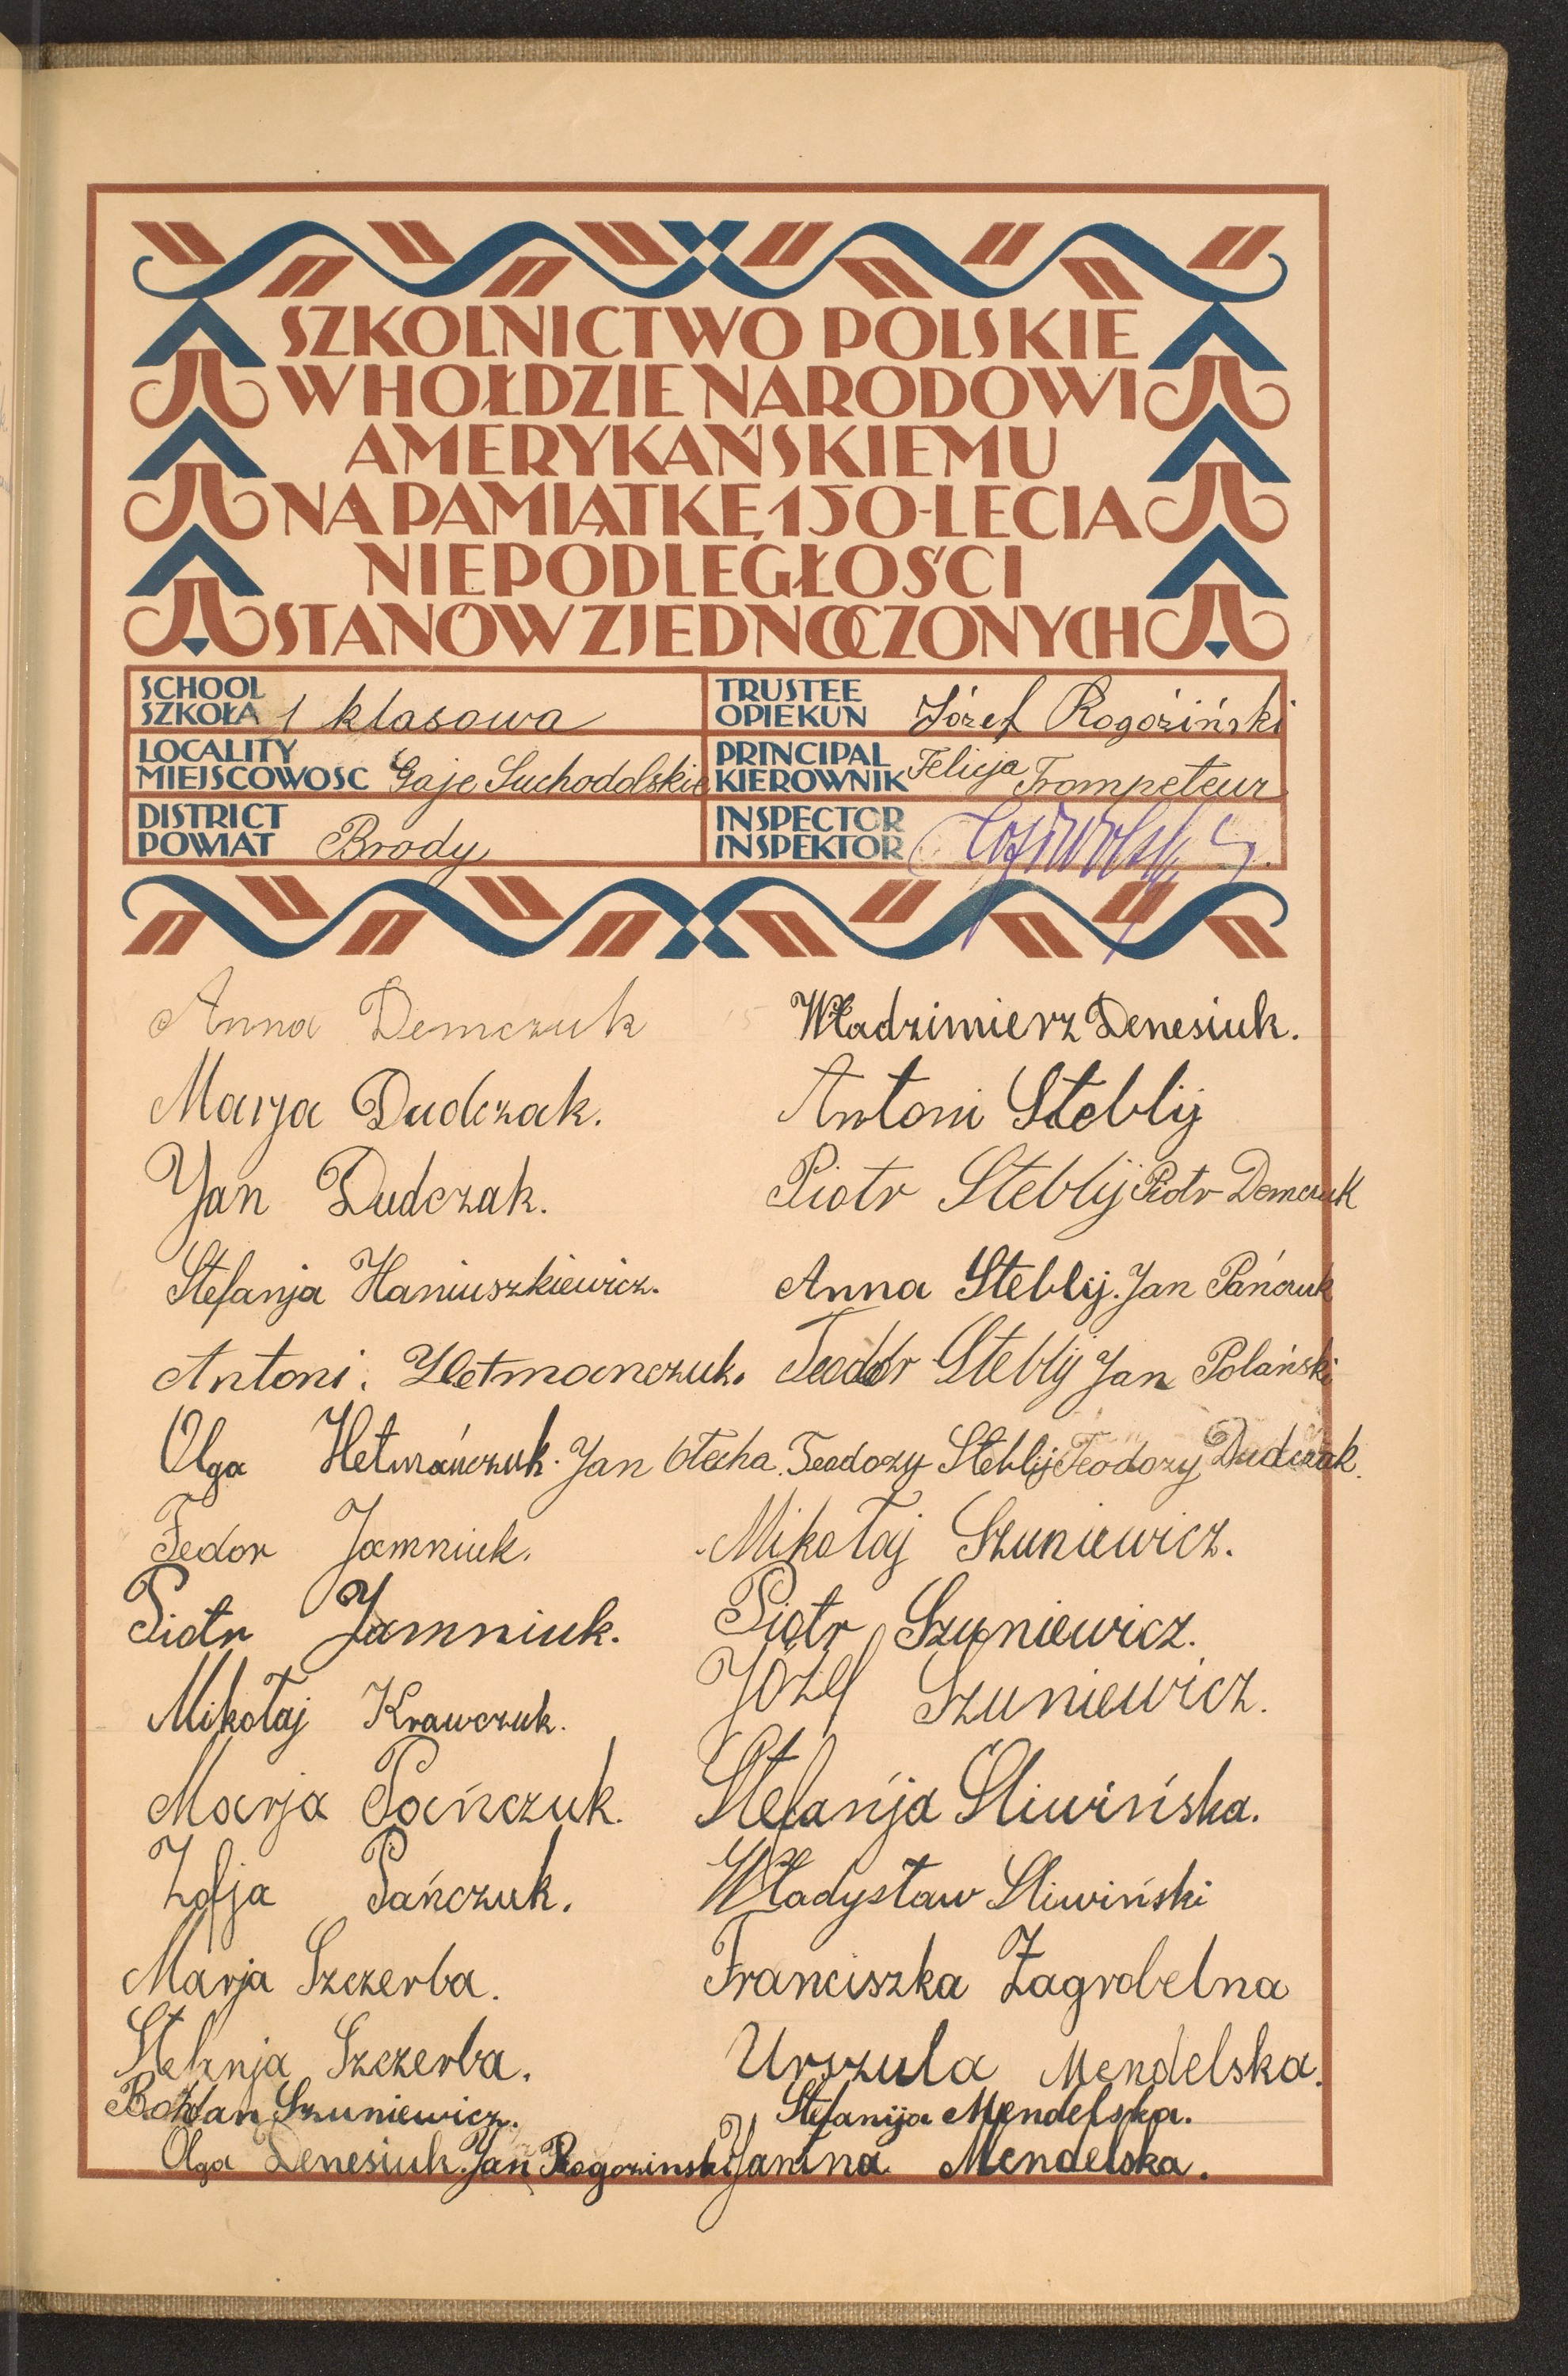 SZKOLNICTWO POLSKIE
W HOŁDZIE NARODOWI
AMERYKAŃSKIEMU
NA PAMIĄTKĘ 150-LECIA
NIEPODLEGŁOŚCI
STANÓW ZJEDNOCZONYCH
SCHOOL
SZKOŁA 1 klasowa
TRUSTEE
OPIEKUN Józef Rogoziński
LOCALITY
MIEJSCOWOSC Gaje Suchodolskie
PRINCIPAL
KIEROWNIK Felicja Trompeteur
DISTRICT
POWIAT Brody
INSPECTOR
INSPEKTOR
Anna Demczuk
Marja Dudczak.
Jan Dudczak.
Stefanja Haniuszkiewicz.
Antoni. Hetmanczuk.
Olga Hetmańczuk. Jan
Fedor Jamniuk.
Piotr Jamniuk.
Mikołaj Krawczuk.
Marja Pańczuk.
Zofja Pańczuk.
Marja Szczerba.
Stefanja Szczerba.
Bohdan Szuniewicz.
Olga Denesiuk. Jan Rogozinski
Władzimierz Denesiuk.
Antoni Steblij
Piotr Steblij Piotr Demczuk
Anna Steblij. Jan Pańczuk
Teodor Steblij Jan Polański
Teodozy Steblij Teodozy Dudczak.
Mikołaj Szuniewicz.
Piotr Szuniewicz.
Józef Szuniewicz.
Stefanja Sliwińska.
Władysław Sliwiński
Franciszka Zagrobelna
Urszula Mendelska.
Stefanija Mendelska.
Janina Mendelska.